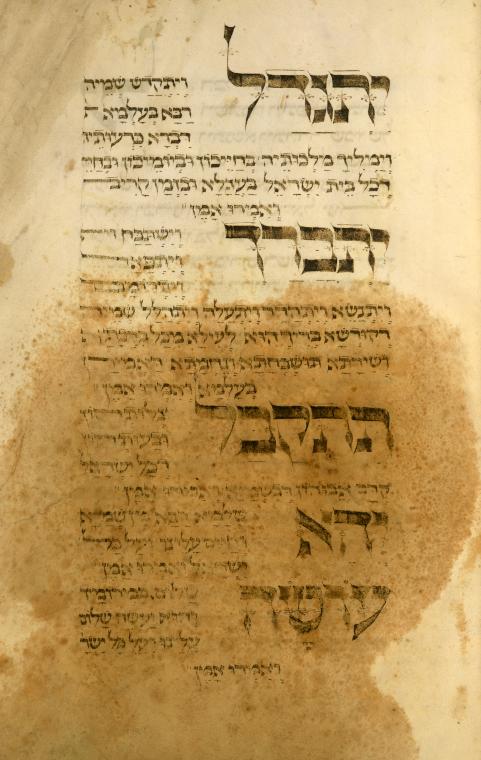 יתגדל ויתקדש שמיה
רבא בעלמא ד
דברא כרעותיה
וימליך מלכותיה בחייכון וביומיכון ובחיי
דכל בית ישראל בעגלא ובזמן קריב
ואמרו אמן
יתברך וישתבח
ויתפאר
ויתרומם
ויתנשא ויתהדר ויתעלה ויתהלל שמיה
דקודשא בריך הוא לעילא מכל ברכתא
ושירתא תושבחתא ונחמתא דאמירן
בעלמא ואמרו אמן
תתקבל צלותהון
ובעותהון
דכל ישראל
קדם אבוהון דבשמיא ואמרו אמן
יהא שלמא רבא מן שמיא
וחיים עלינו ועל כל
ישראל ואמרו אמן
עושה שלום במרומיו
הוא יעשה שלום
עלינו ועל כל ישר
ואמרו אמן